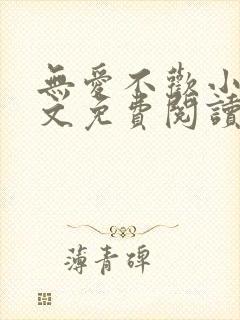 無愛不歡小
文免費閱讀
薄青碑